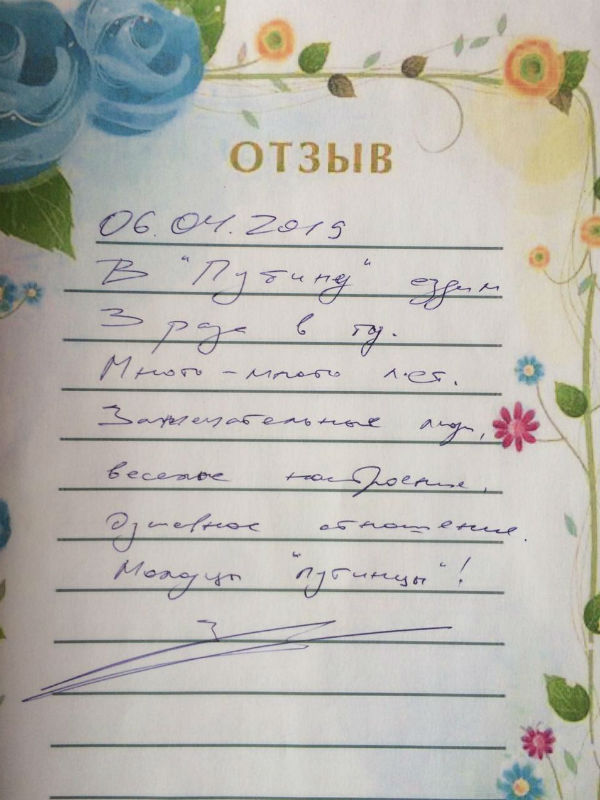 ОТЗЫВ
06.04.2019
В "Путину" ездим
3 раза в год.
Много-много лет.
Замечательные люди,
веселое настроение,
душевное отношение.
Молодцы "путинцы"!